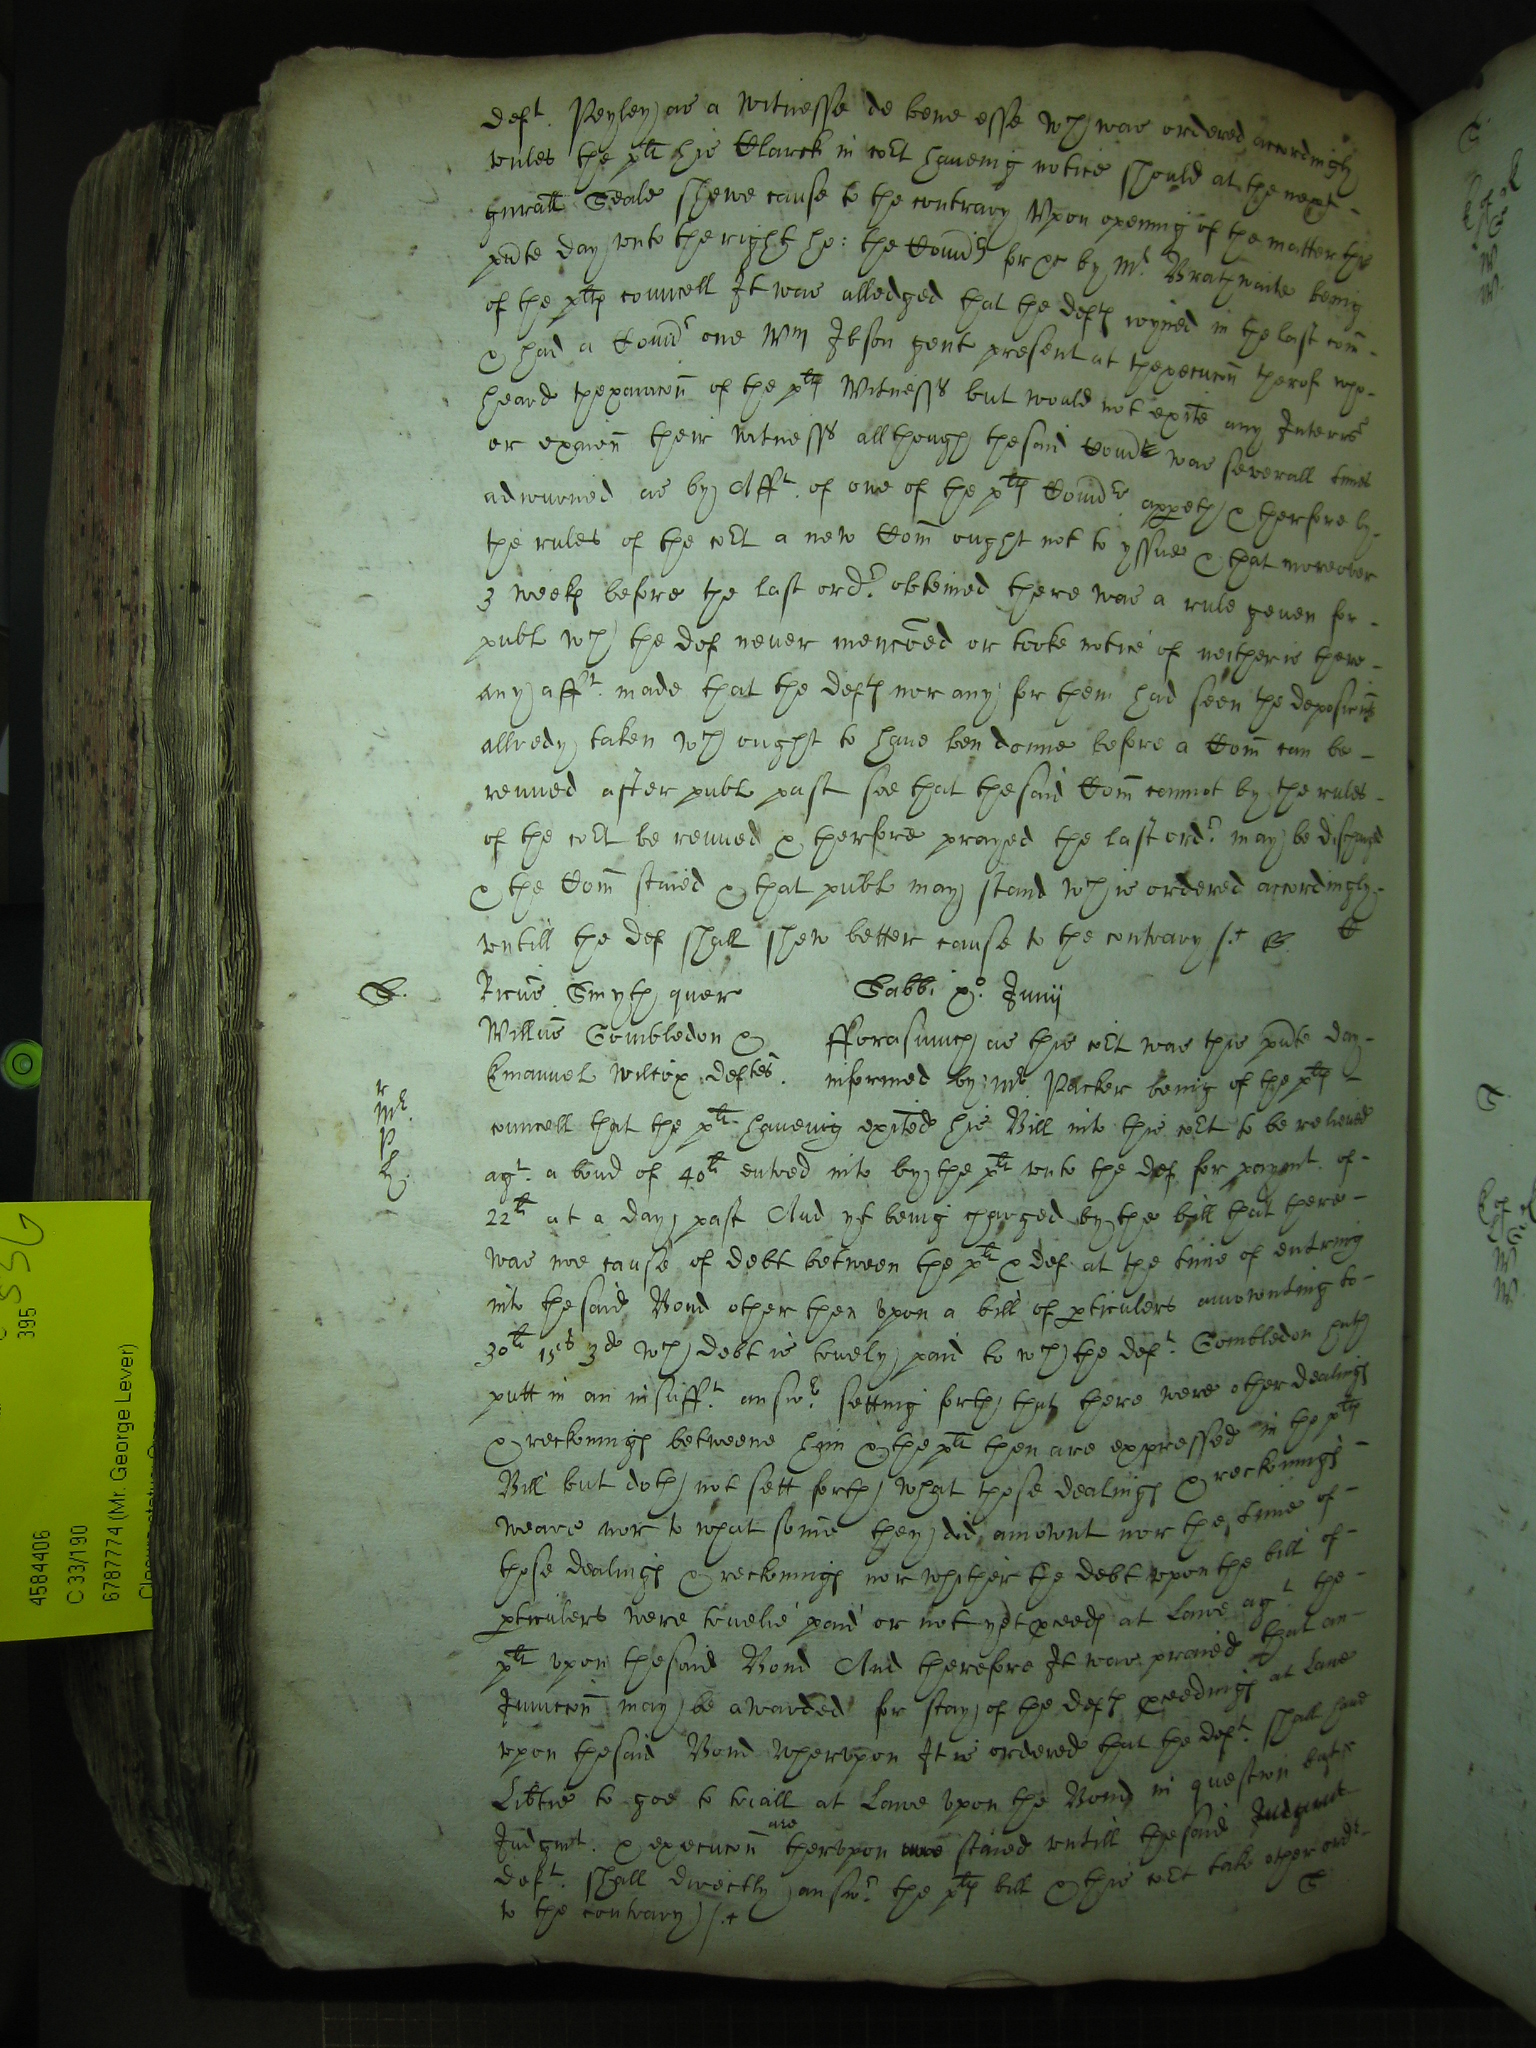 deft. Peyley as a witnesse de bene esse wch was ordered accordingly
vnles the plt his Clarck in cort haueing notice should at the next
gnrall Seale shewe cause to the contrary Vpon opening of the matter this
pnte day vnto the right ho: the Comrs for &c by Mr. Brathwaite being
of the plts councell It was alledged that the defts ioyned in the last com
& had a Comr one Wm Ibson gent present at thexecucon therof who
heard thexaiacon of the plts Witnesss but would not exite any Interrs
or exaien their witnesss allthough thesaid Com was severall times
adiourned as by Afft. of one of the plts Comrs appeth & therfore by
the rules of the cort a new Com ought not to yssue & that moreover
3 weeks before the last ordr. obteined there was a rule geuen for
publ wch the def never mencoed or tooke notice of neither is there
any afft. made that the defts nor any for them had seen the deposicons
allredy taken wch ought to haue ben donne before a Com can be
renued after publ past soe that thesaid Com cannot by the rules
of the cort be renued & therfore prayed the last ordr may be discharged
& the Com staied & that publ may stand wch is ordered accordingly
vntill the def shall shew better cause to the contrary
S. Ricus Smyth quer Sabbi xo. Junij
Willus Gombledon & fforasmuch as this cort was this pnte day
Emanuel Wilcox deftes. informed by Mr. Packer being of the plts
councell that the plt haueing exited his Bill into this cort to be relieued
agt. a bond of 40li entred into by the plt vnto the def for paymt. of
22li at a day past And yt being charged by the bill that there
was noe cause of debt between the plt & def at the time of entring
into thesaid Bond other then vpon a bill of pticulers amownting to
30li 15s 3d wch debt is truely paid to wch the deft. Gombledon hath
putt in an insufft. answr. setting forth that there were other dealings
& reckonings betweene him & the plt then are expressed in the plts
Bill but doth not sett forth what those dealings & reckonings
weare nor to what some they did amownt nor the time of
those dealings & reckonings nor whither the debt vpon the bill of
pticulers were truelie paid or not yet pceeds at Lawe agt the
plt vpon thesaid Bond And therefore It was praied that an
Iniunccon may be awarded for stay of the defts pceedings at Lawe
vpon thesaid Bond Whervpon It is ordered that the deft. shall haue
Libtie to goe to triall at Lawe vpon the Bond in question but
Iudgmt. & execucon thervpon are staied vntill thesaid
deft. shall directly answr. the plts bill & this cort take other ordr
to the contrary
4584406
C 33/190
6787774 (Mr. George Lever)
395